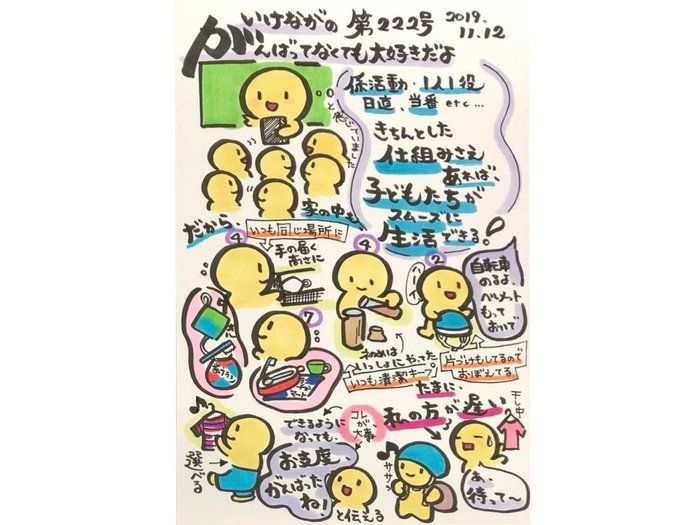 いけながの 第222号 2019.
11.12
がんばってなくても大好きだよ
係活動・1人1役
日直、当番 etc…
と思っていました
きちんとした
仕組みさえ
あれば、
子どもたちが
スムーズに
生活できる!
だから、
家の中も、
いつも同じ場所に
手の届く
高さに
④
④
②
⑦
自転車
のるよ、
ヘルメット
もって
おいで
いっしょにやってた
いつも清潔キープ
片づけもしてるので
おぼえてる
たまに、
私の方が遅い
干し中
できるように
なっても、
コレ
が
大事
お支度、
がんばった
ね!
と伝える
選べる
ササッ
あ、
待って〜